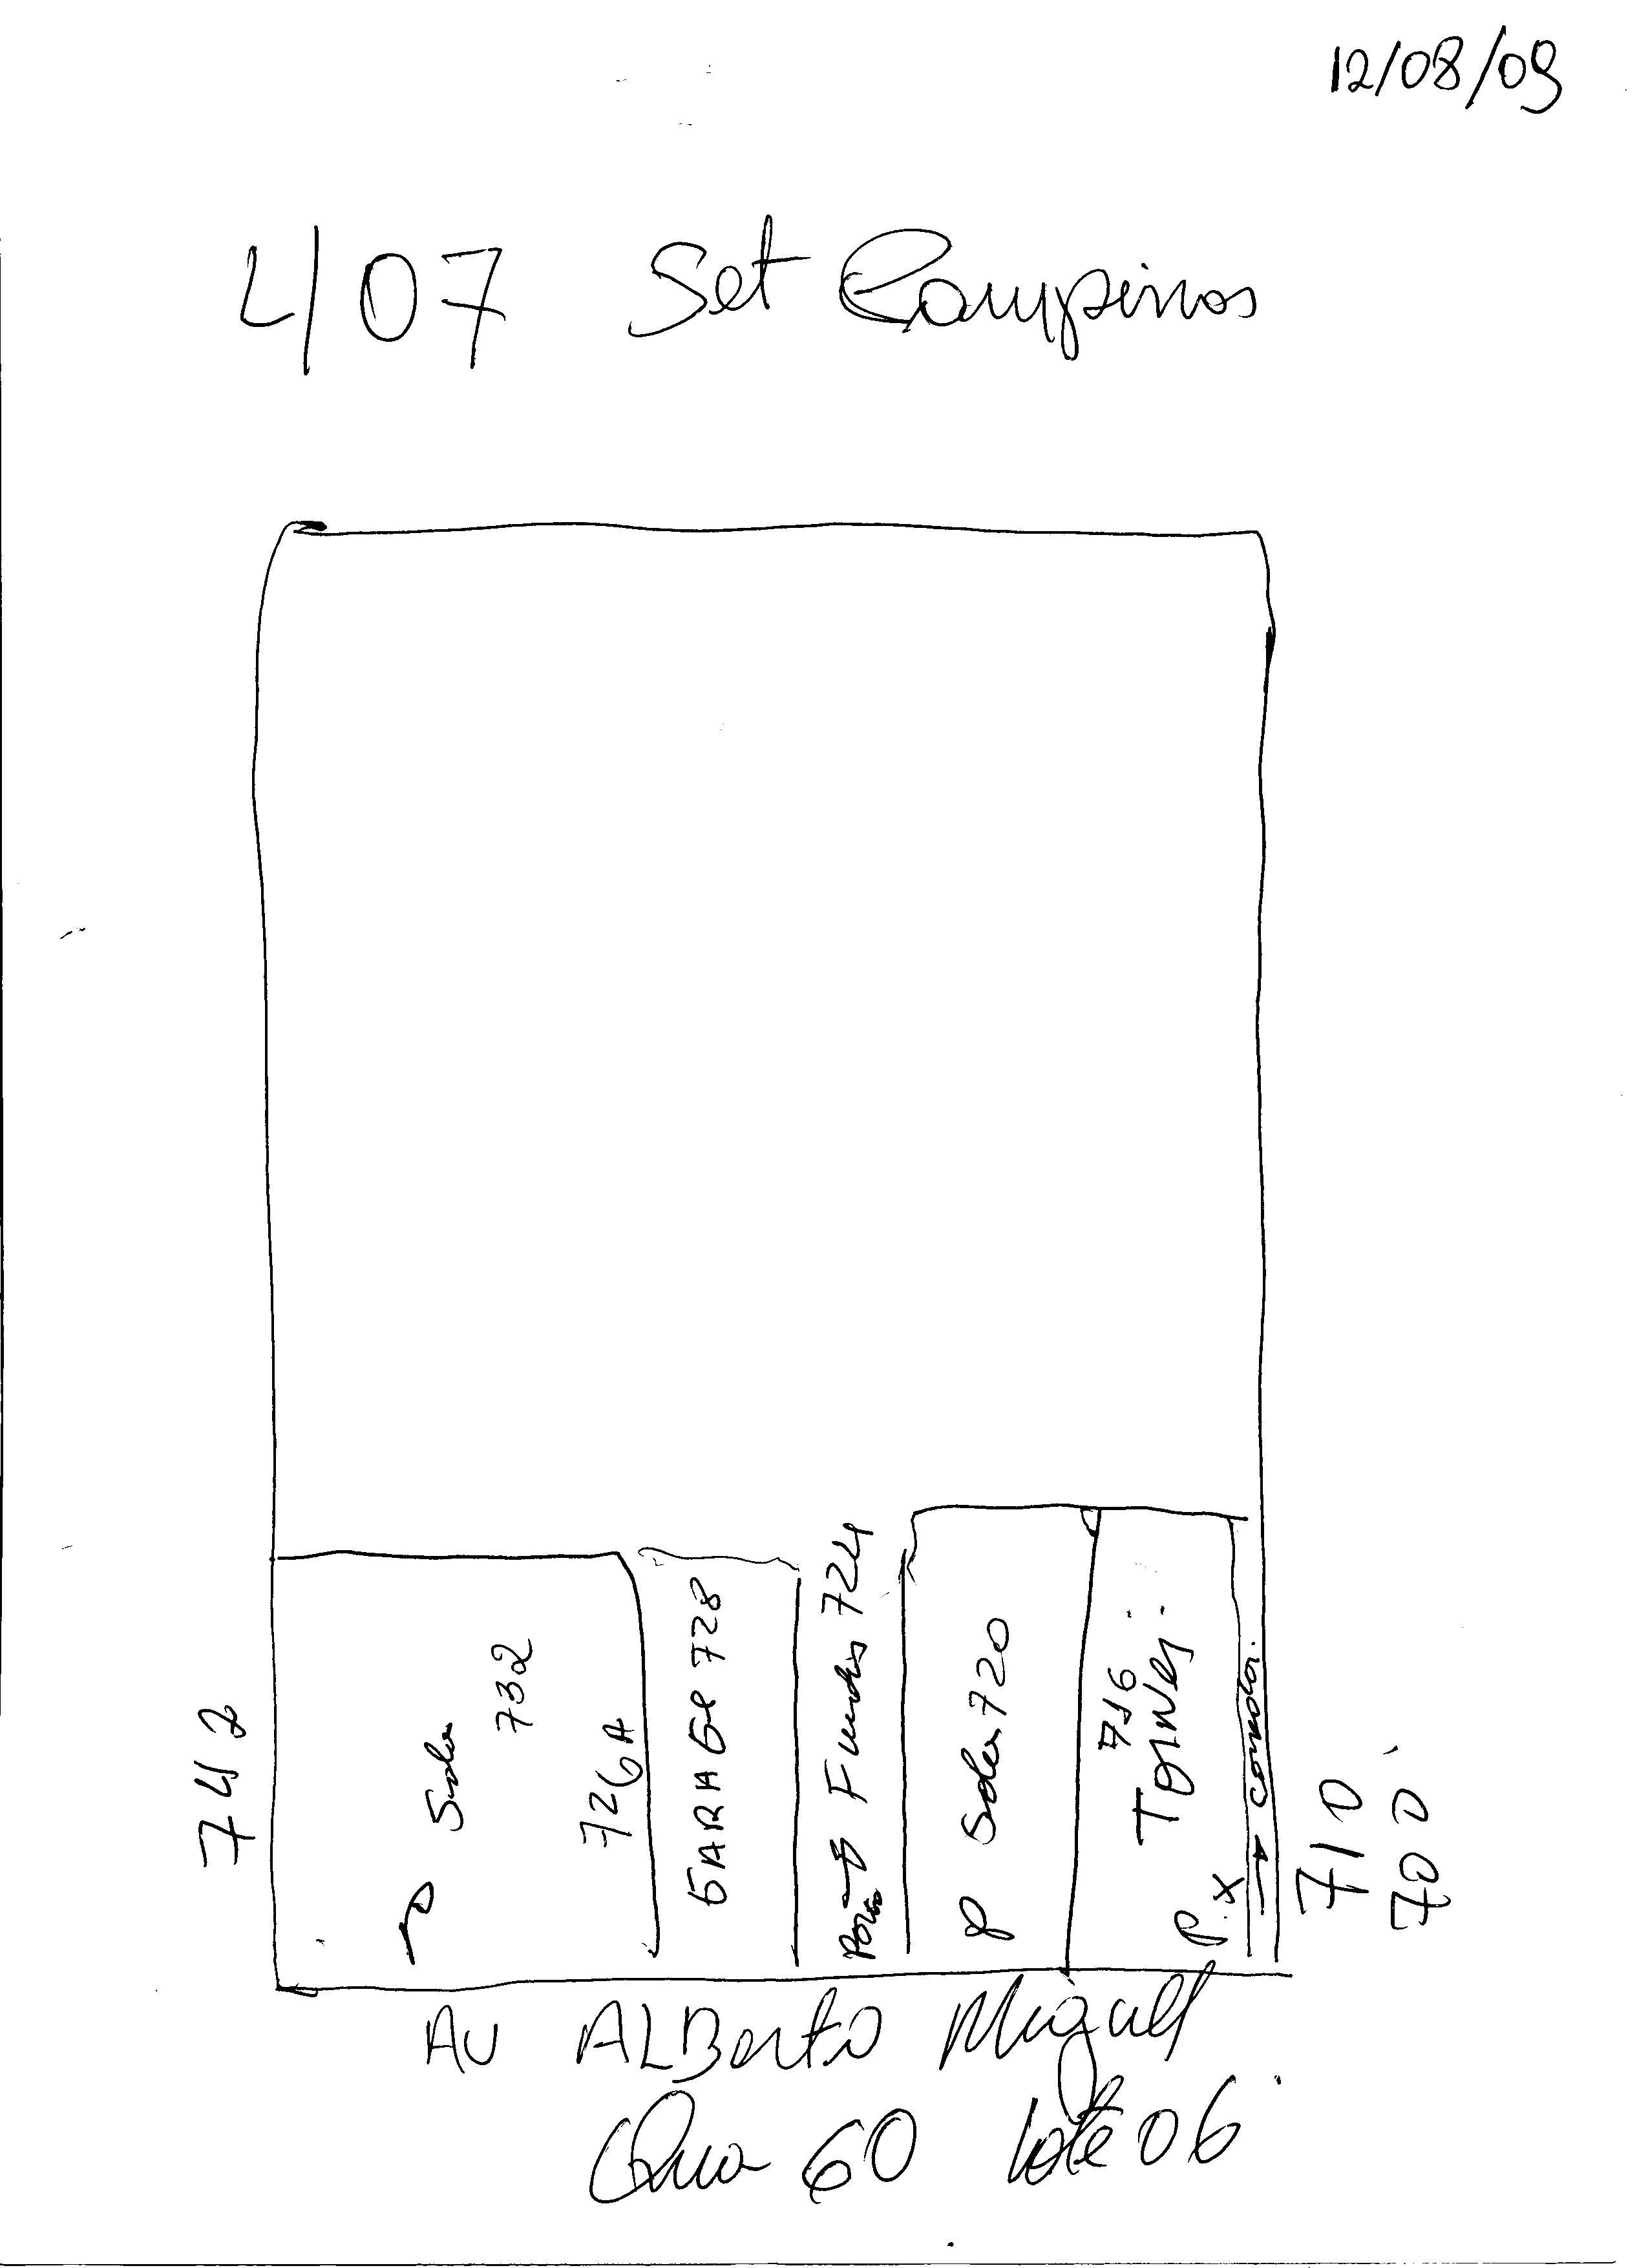 12/08/09
4/07 Set Campinas
742
Sala
732
726A
GARAGE 728
Fundos 724
Sala 720
716
P. X
corredor.
710
700
AV ALBerto Miguel
Qua 60 lote 06